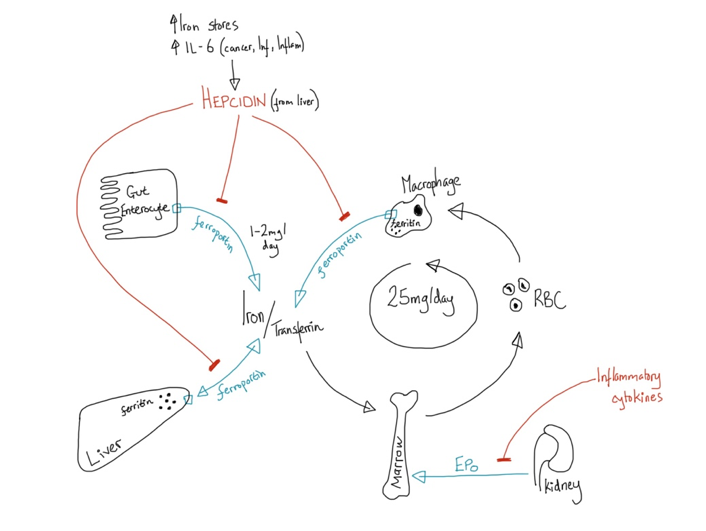 ↑Iron stores
↑ IL-6 (cancer, Inf, Inflam)
HEPCIDIN (from liver)
Gut
Enterocyte
ferroportin
1-2mg/
day
Macrophage
ferritin
ferroportin
25mg/day
RBC
Iron/
Transferrin
ferroportin
ferritin
Liver
Marrow
EPO
Inflammatory
cytokines
Kidney